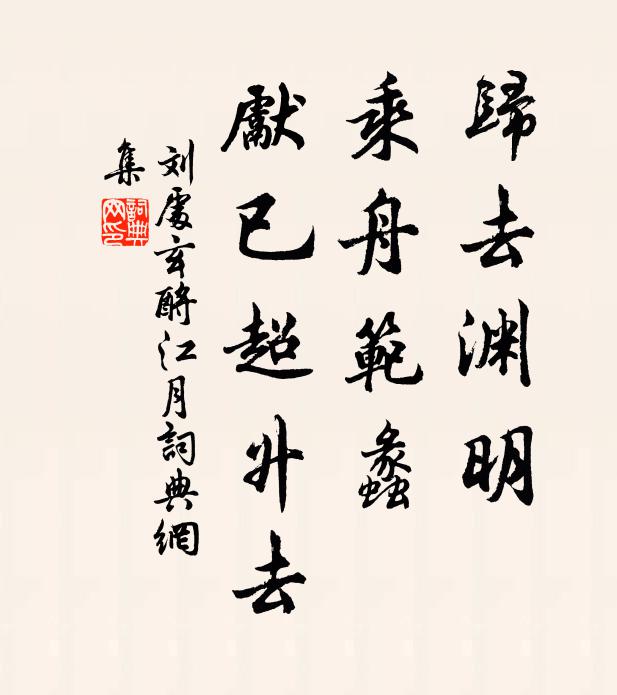 歸去渊明
乘舟範蠡
獻已超升去
刘處玄酹江月詞典網
集
詞典網印